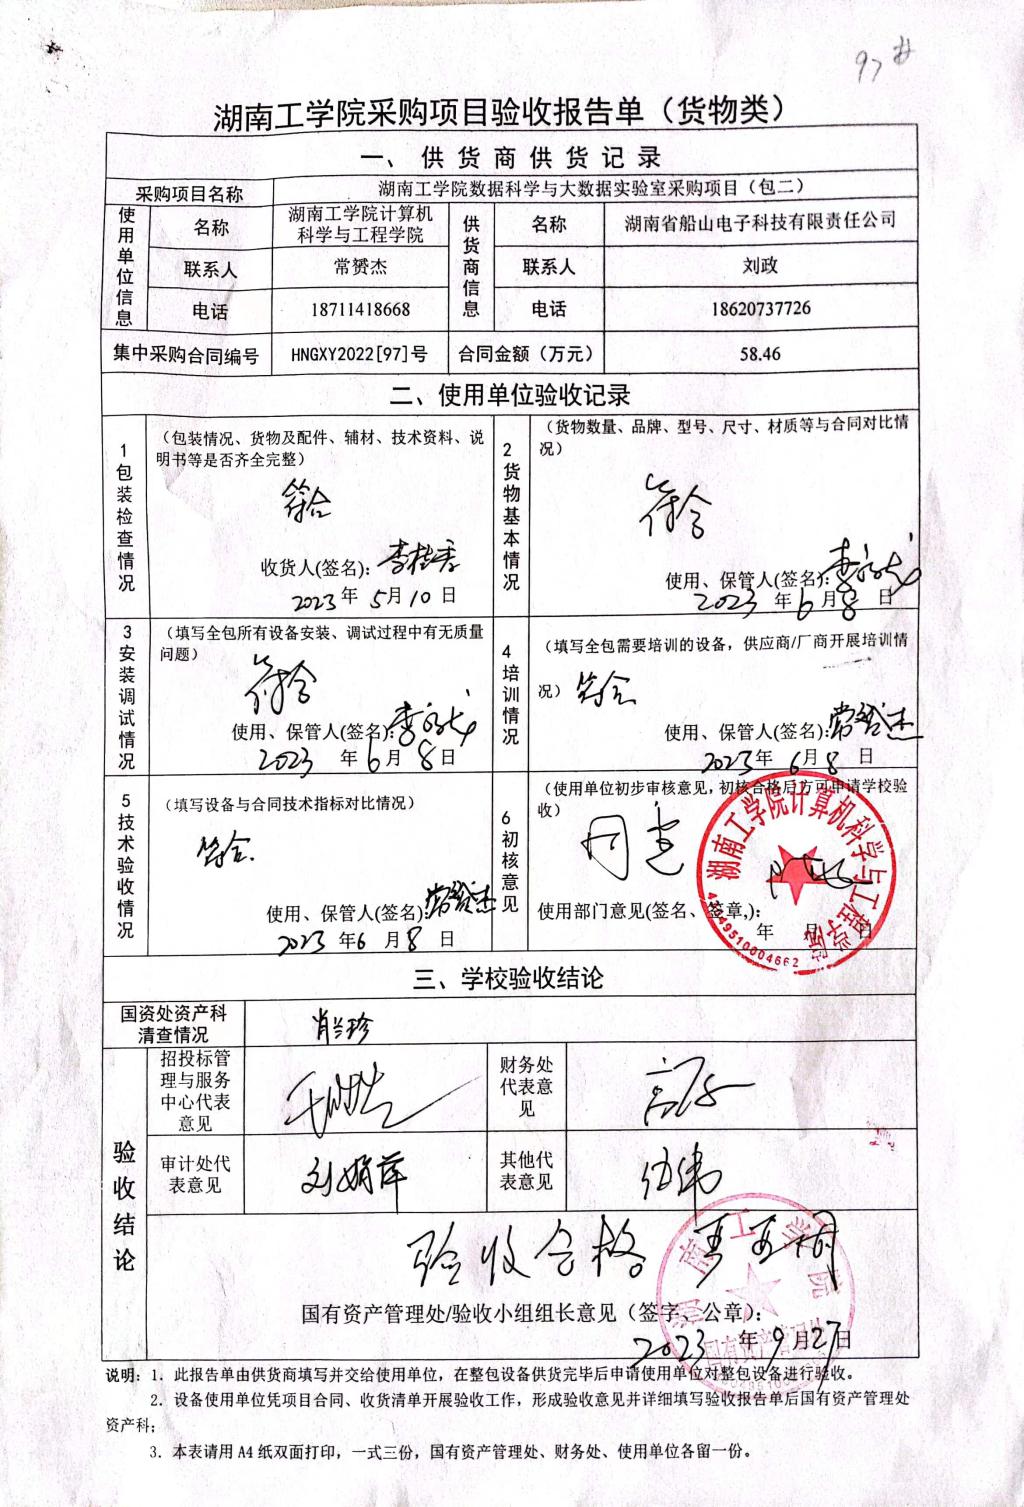 97#
湖南工学院采购项目验收报告单（货物类）
一、供货商供货记录
采购项目名称
湖南工学院数据科学与大数据实验室采购项目（包二）
使用单位信息
名称
湖南工学院计算机
科学与工程学院
供货商信息
名称
湖南省船山电子科技有限责任公司
联系人
常赟杰
联系人
刘政
电话
18711418668
电话
18620737726
集中采购合同编号
HNGXY2022[97]号
合同金额（万元）
58.46
二、使用单位验收记录
1包装检查情况
（包装情况、货物及配件、辅材、技术资料、说
明书等是否齐全完整）
符合
收货人(签名):
2023年5月10日
2货物基本情况
（货物数量、品牌、型号、尺寸、材质等与合同对比情
况）
符合
使用、保管人(签名):
2023年6月8日
3安装调试情况
（填写全包所有设备安装、调试过程中有无质量
问题）
符合
使用、保管人(签名):
2023年6月8日
4培训情况
（填写全包需要培训的设备，供应商/厂商开展培训情
况）符合
使用、保管人(签名):
2023年6月8日
5技术验收情况
（填写设备与合同技术指标对比情况）
符合.
使用、保管人(签名):
2023年6月8日
6初核意见
（使用单位初步审核意见，初核合格后方可申请学校验
收）
同意
使用部门意见(签名、签章,):
年 月 日
湖南工学院计算机科学与工程学院
三、学校验收结论
国资处资产科
清查情况
肖兰珍
验收结论
招投标管
理与服务
中心代表
意见
财务处
代表意
见
审计处代
表意见
刘娟萍
其他代
表意见
伍伟
验收合格
国有资产管理处/验收小组组长意见（签字、公章）：
2023年9月27日
湖南工学院
国有资产管理处
说明：1. 此报告单由供货商填写并交给使用单位，在整包设备供货完毕后申请使用单位对整包设备进行验收。
2. 设备使用单位凭项目合同、收货清单开展验收工作，形成验收意见并详细填写验收报告单后国有资产管理处
资产科；
3. 本表请用 A4 纸双面打印，一式三份，国有资产管理处、财务处、使用单位各留一份。